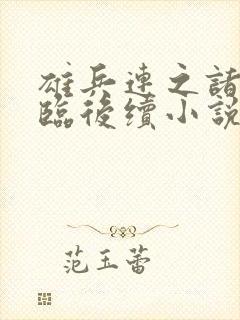 雄兵連之諸
臨後續小說
范玉蕾